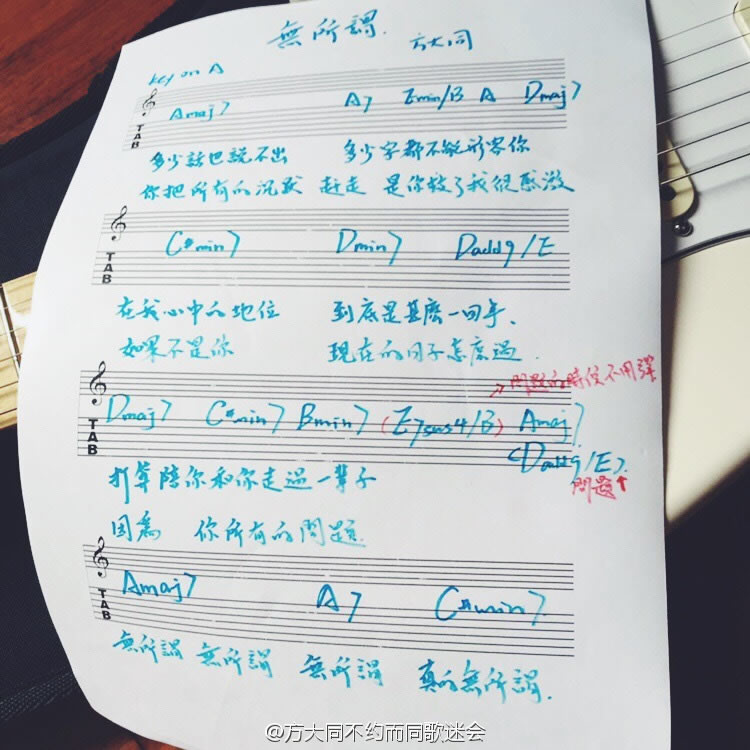 無所謂. 方大同
key on A
Amaj7 A7 Emin/B A Dmaj7
TAB
多少話也說不出 多少字都不能形容你
你把所有的沉默 赶走 是你救了我很感激
C#min7 Dmin7 Dadd9/E
TAB
在我心中的地位 到底是甚麼一回事.
如果不是你 現在的日子怎麼過.
→問題的時候不用彈
Dmaj7 C#min7 Bmin7 (E7sus4/B) Amaj7
TAB
(Dadd9/E).
問題↑
打算陪你和你走過一輩子
因為 你所有的問題.
Amaj7 A7 C#min7.
TAB
無所謂 無所謂 無所謂 真的無所謂.
@方大同不约而同歌迷会